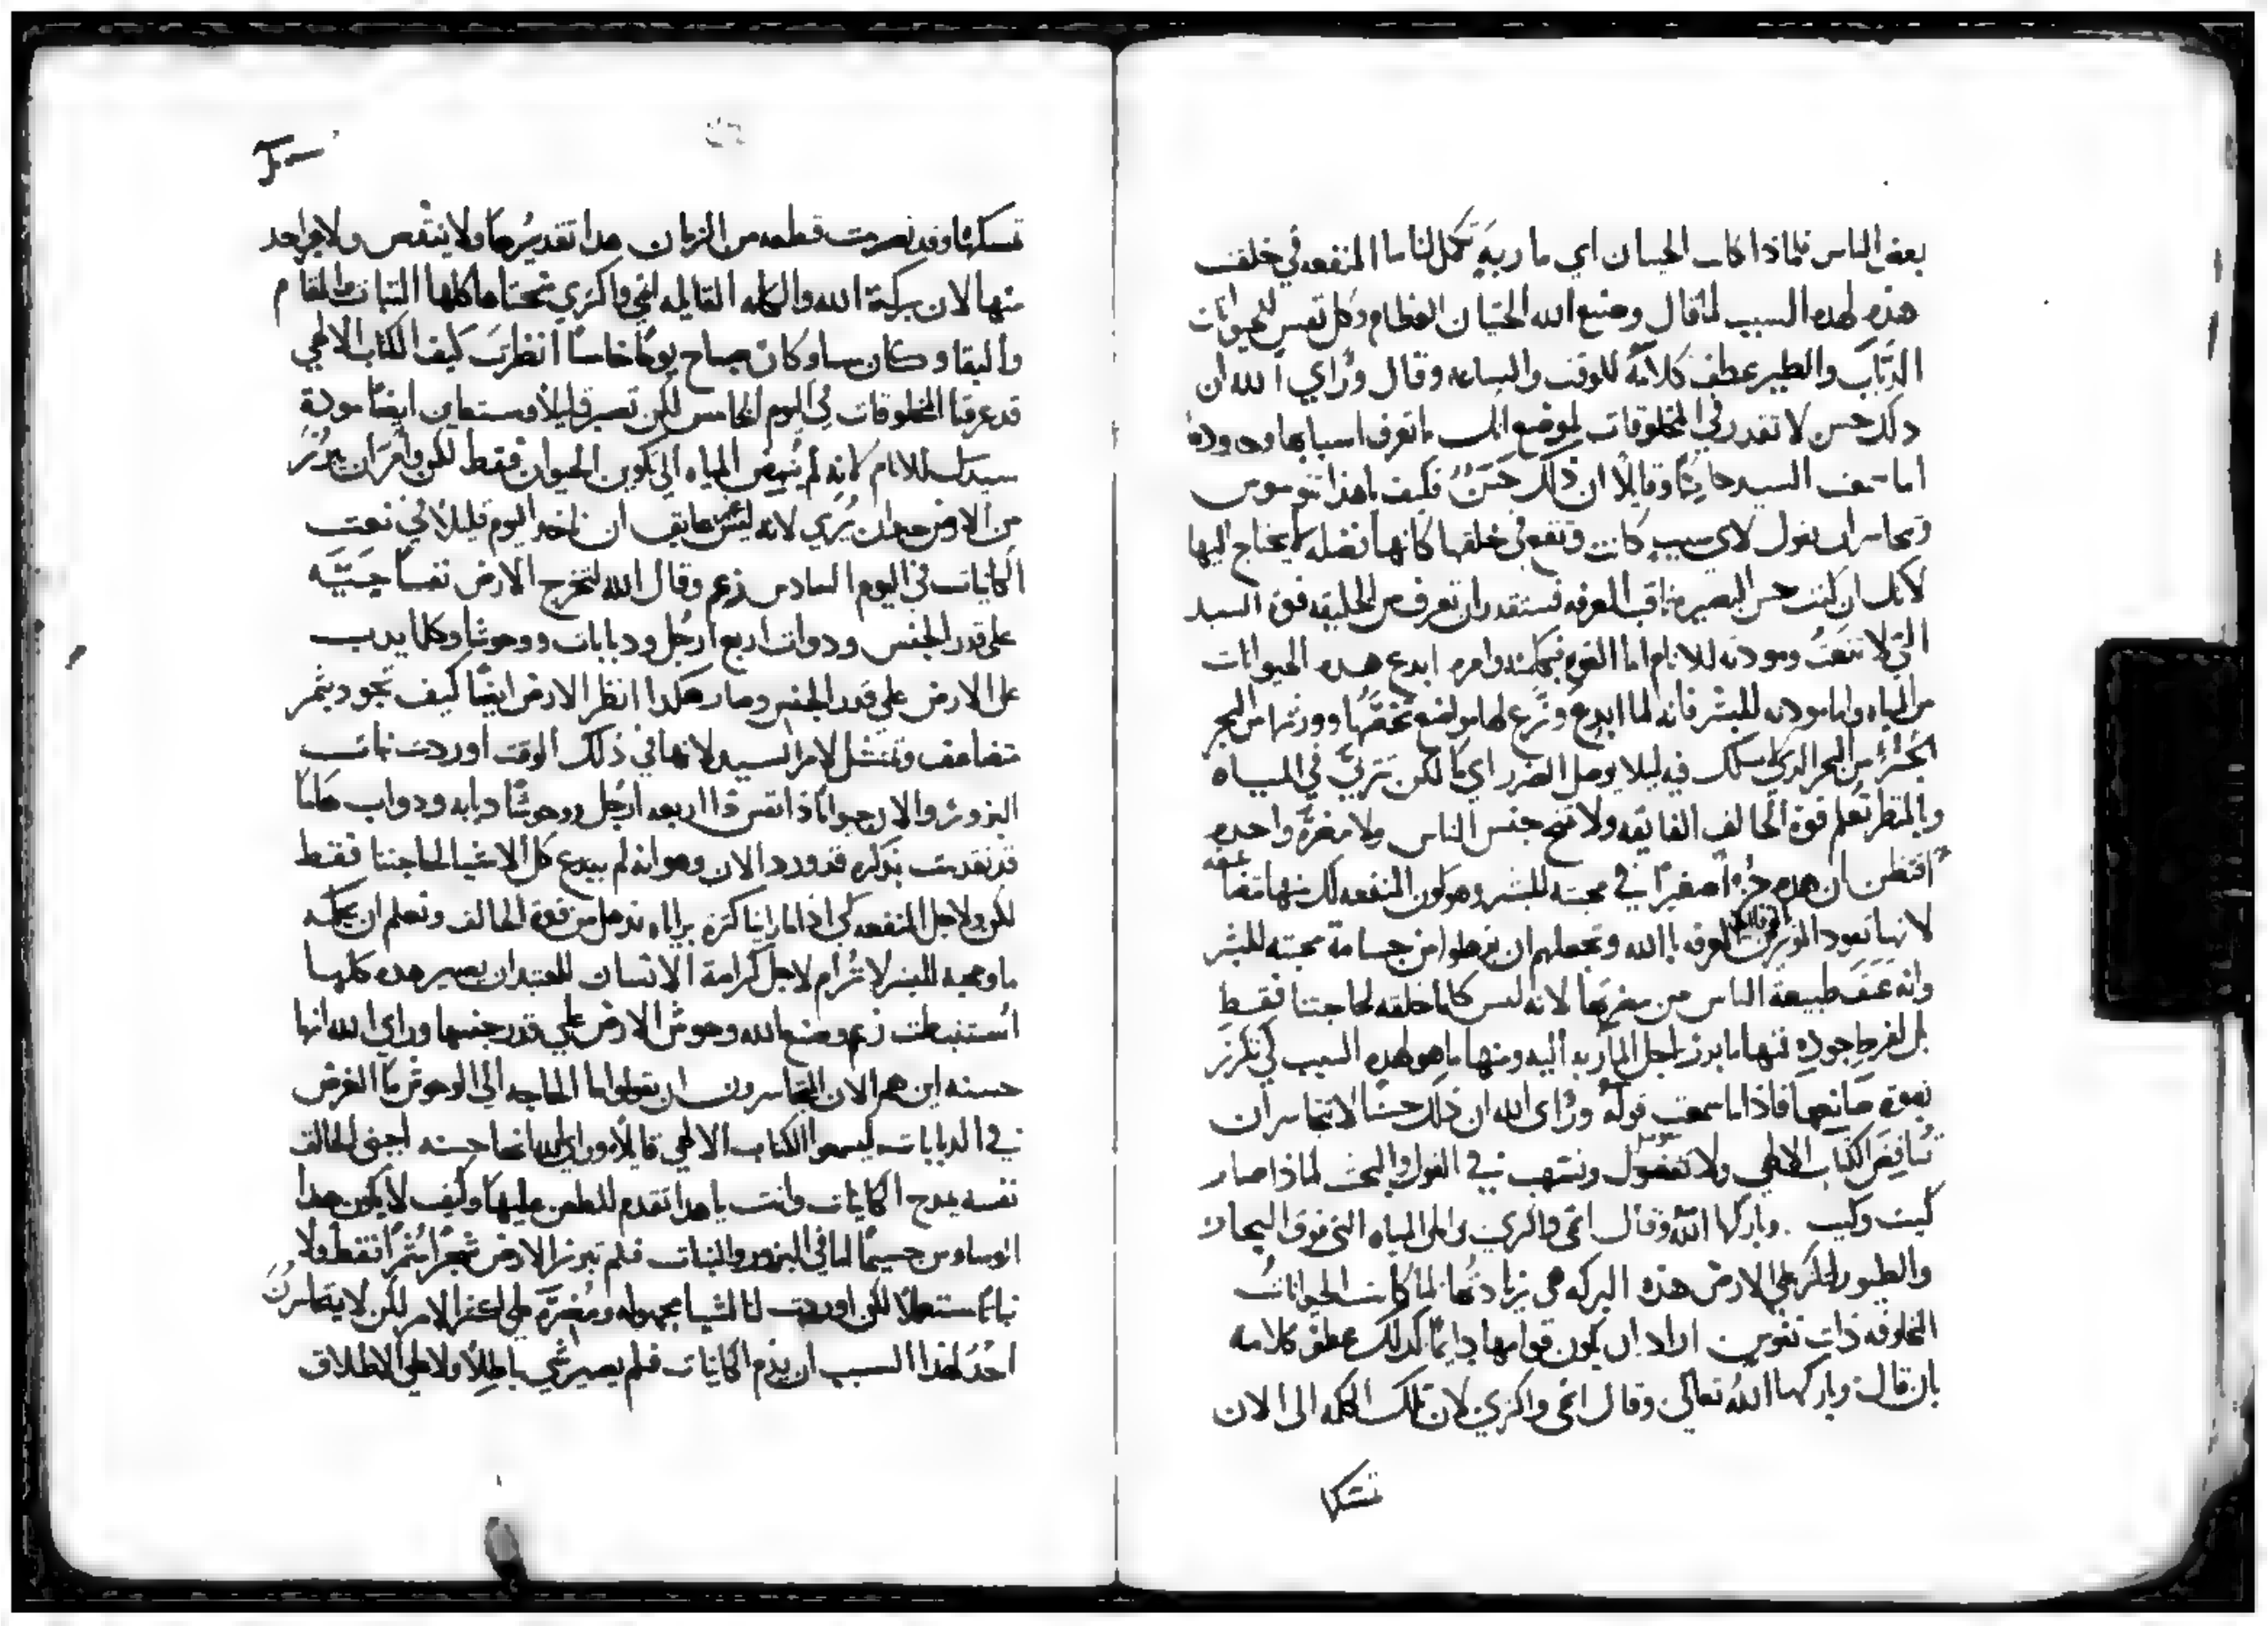 بعض الناس فلماذا كانت الحيتان اي ماربة تكمل لنا ما المنفعه في خلقت
هذه لهذه السبب لما قال وصنع الله الحيتان العظام وكل نفس الحيوانات
الدبّاب والطير عطف كلامه للوقت والساعه وقال وراي الله ان
ذلك حسن لا تقدر في المخلوقات لموضع انك ما تعرف اسبابها
اما سمعت السيد قايلًا ان ذلك حَسَنٌ فكيف ياهذا توسوس
وتجاسر ان تقول لاي سبب كانت وتقع في خلقها كانها فضله لا يحتاج اليها
لانك ان كنت حسن البصيره ثاقب المعرفه فستقدر ان تعرف من الخليقه قوة السيد
التي لا تنعت ومودته للانام اما القوه فبكلمته وامره ابدع هذه الحيوانات
من المياه واما مودته للبشر فانه لما ابدع وزع لها مواضع تخصّها من البحر
من البحر الذي يسلك فيه ليلا يوصل الضرر اي لكن تتربي في المياه
وبالمنظر تعلم قوة الخالق الفايقه ولا جنس الناس ولا مضرة واحده
افتظن ان هذه جزءًا صغيرًا في محبته للبشر وهو كون المنفعه لك منها متضاعفه
لانها تقود المعرفه بالله وتجعلهم ان يذهلوا من جسامة محبته للبشر
وانه عتق طبيعة الناس من مضرتها لانه ليس كلما خلقه لحاجتنا فقط
بل لفرط جوده منها ما برز لاجل الماربه اليه ومنها ما هو لهذه السبب كي تكرز
بقوة صانعها فاذا ما سمعت قوله وراي الله ان ذلك حسنًا لا تتجاسر ان
تناقض الكتاب الالهي ولا تفضول وتنتهب في القول والبحث لماذا صار
كيت وكيت . وباركها الله وقال انمي واكثري واملي المياه التي فوق البحار
والطيور لتكثر علي الارض هذه البركه هي زيادتها لما كانت الحيوانات
المخلوقه ذات نفوس اراد ان يكون قوامها دايمًا كذلك عطف كلامه
بان قال وباركها الله تعالي وقال انمي واكثري لان تلك الكلمه الى الان
تمسكها
تمسكها وقد تصرمت قطعه من الزمان هذا تقديرها ولا ينقص ولا واحد
منها لان بركة الله والكلمه القايله انمي واكثري تمنحنا كلها الثبات المقام
والبقا وكان مسا وكان صباح يومًا خامسًا انظرت كيف الكتاب الالهي
قد عرفنا المخلوقات في اليوم الخامس لكن تصبر قليلًا فستعاين ايضًا مودة
سيدك للانام لانه لم يُنهض المياه الي تكوين الحيوان فقط لكن وامر ان يبرز
من الارض لانه ليس عايق ان ناخذ اليوم قليلًا في نعت
الكاينات في اليوم السادس زعم وقال الله لتخرج الارض نفسًا حيّه
علي قدر الجنس وذوات اربع ارجُل ودبابات ووحوشا وكلما يدب
علي الارض علي قدر الجنس وصار هكذا انظر الارض ايضًا كيف تجود بثمر
متضاعف وتمتثل لامر السيد لانها في ذلك الوقت اوردت نبات
البزور والان حيوانًا ذا نفس ذا اربعه ارجُل ووحوشًا دابه ودواب هاما
قد تقدمت بذكره قد ورد الان وهو انه لم يبدع كل الاشيا لحاجتنا فقط
لكن ولاجل المنفعه كي اذا ما راينا كثرة براياه نذهل من قوة الخالق ونعلم ان بحكمه
ما ومحبه للبشر لا تُرام لاجل كرامة الانسان المعتيد ان يصير هذه كلها
اُستنبطت زعم وصنع الله وحوش الارض علي قدر جنسها وراي الله انها
حسنه اين هم الان المتجاسرون ان يقولوا ما الحاجه الي الوحوش ما الغرض
في الدبابات ليسمعوا الكتاب الالهي قايلًا وراي الله انها حسنه اجبني الخالق
نفسه يمدح الكاينات وانت ياهذا تقدم للطعن عليها وكيف لا يكون هذا
الوساوس جسيمًا اما في البزور والنبات فلم تبرز الارض شجرًا مُثمرًا فقط ولا
نباتًا مستعملًا لكن اوردت لنا اشيا مجهوله ومُضرّة علي اكثر الامر لكن لا يتجاسرنّ
احدٌ لهذا السبب ان يذم الكاينات فلم يصير شي باطلًا ولا علي الاطلاق